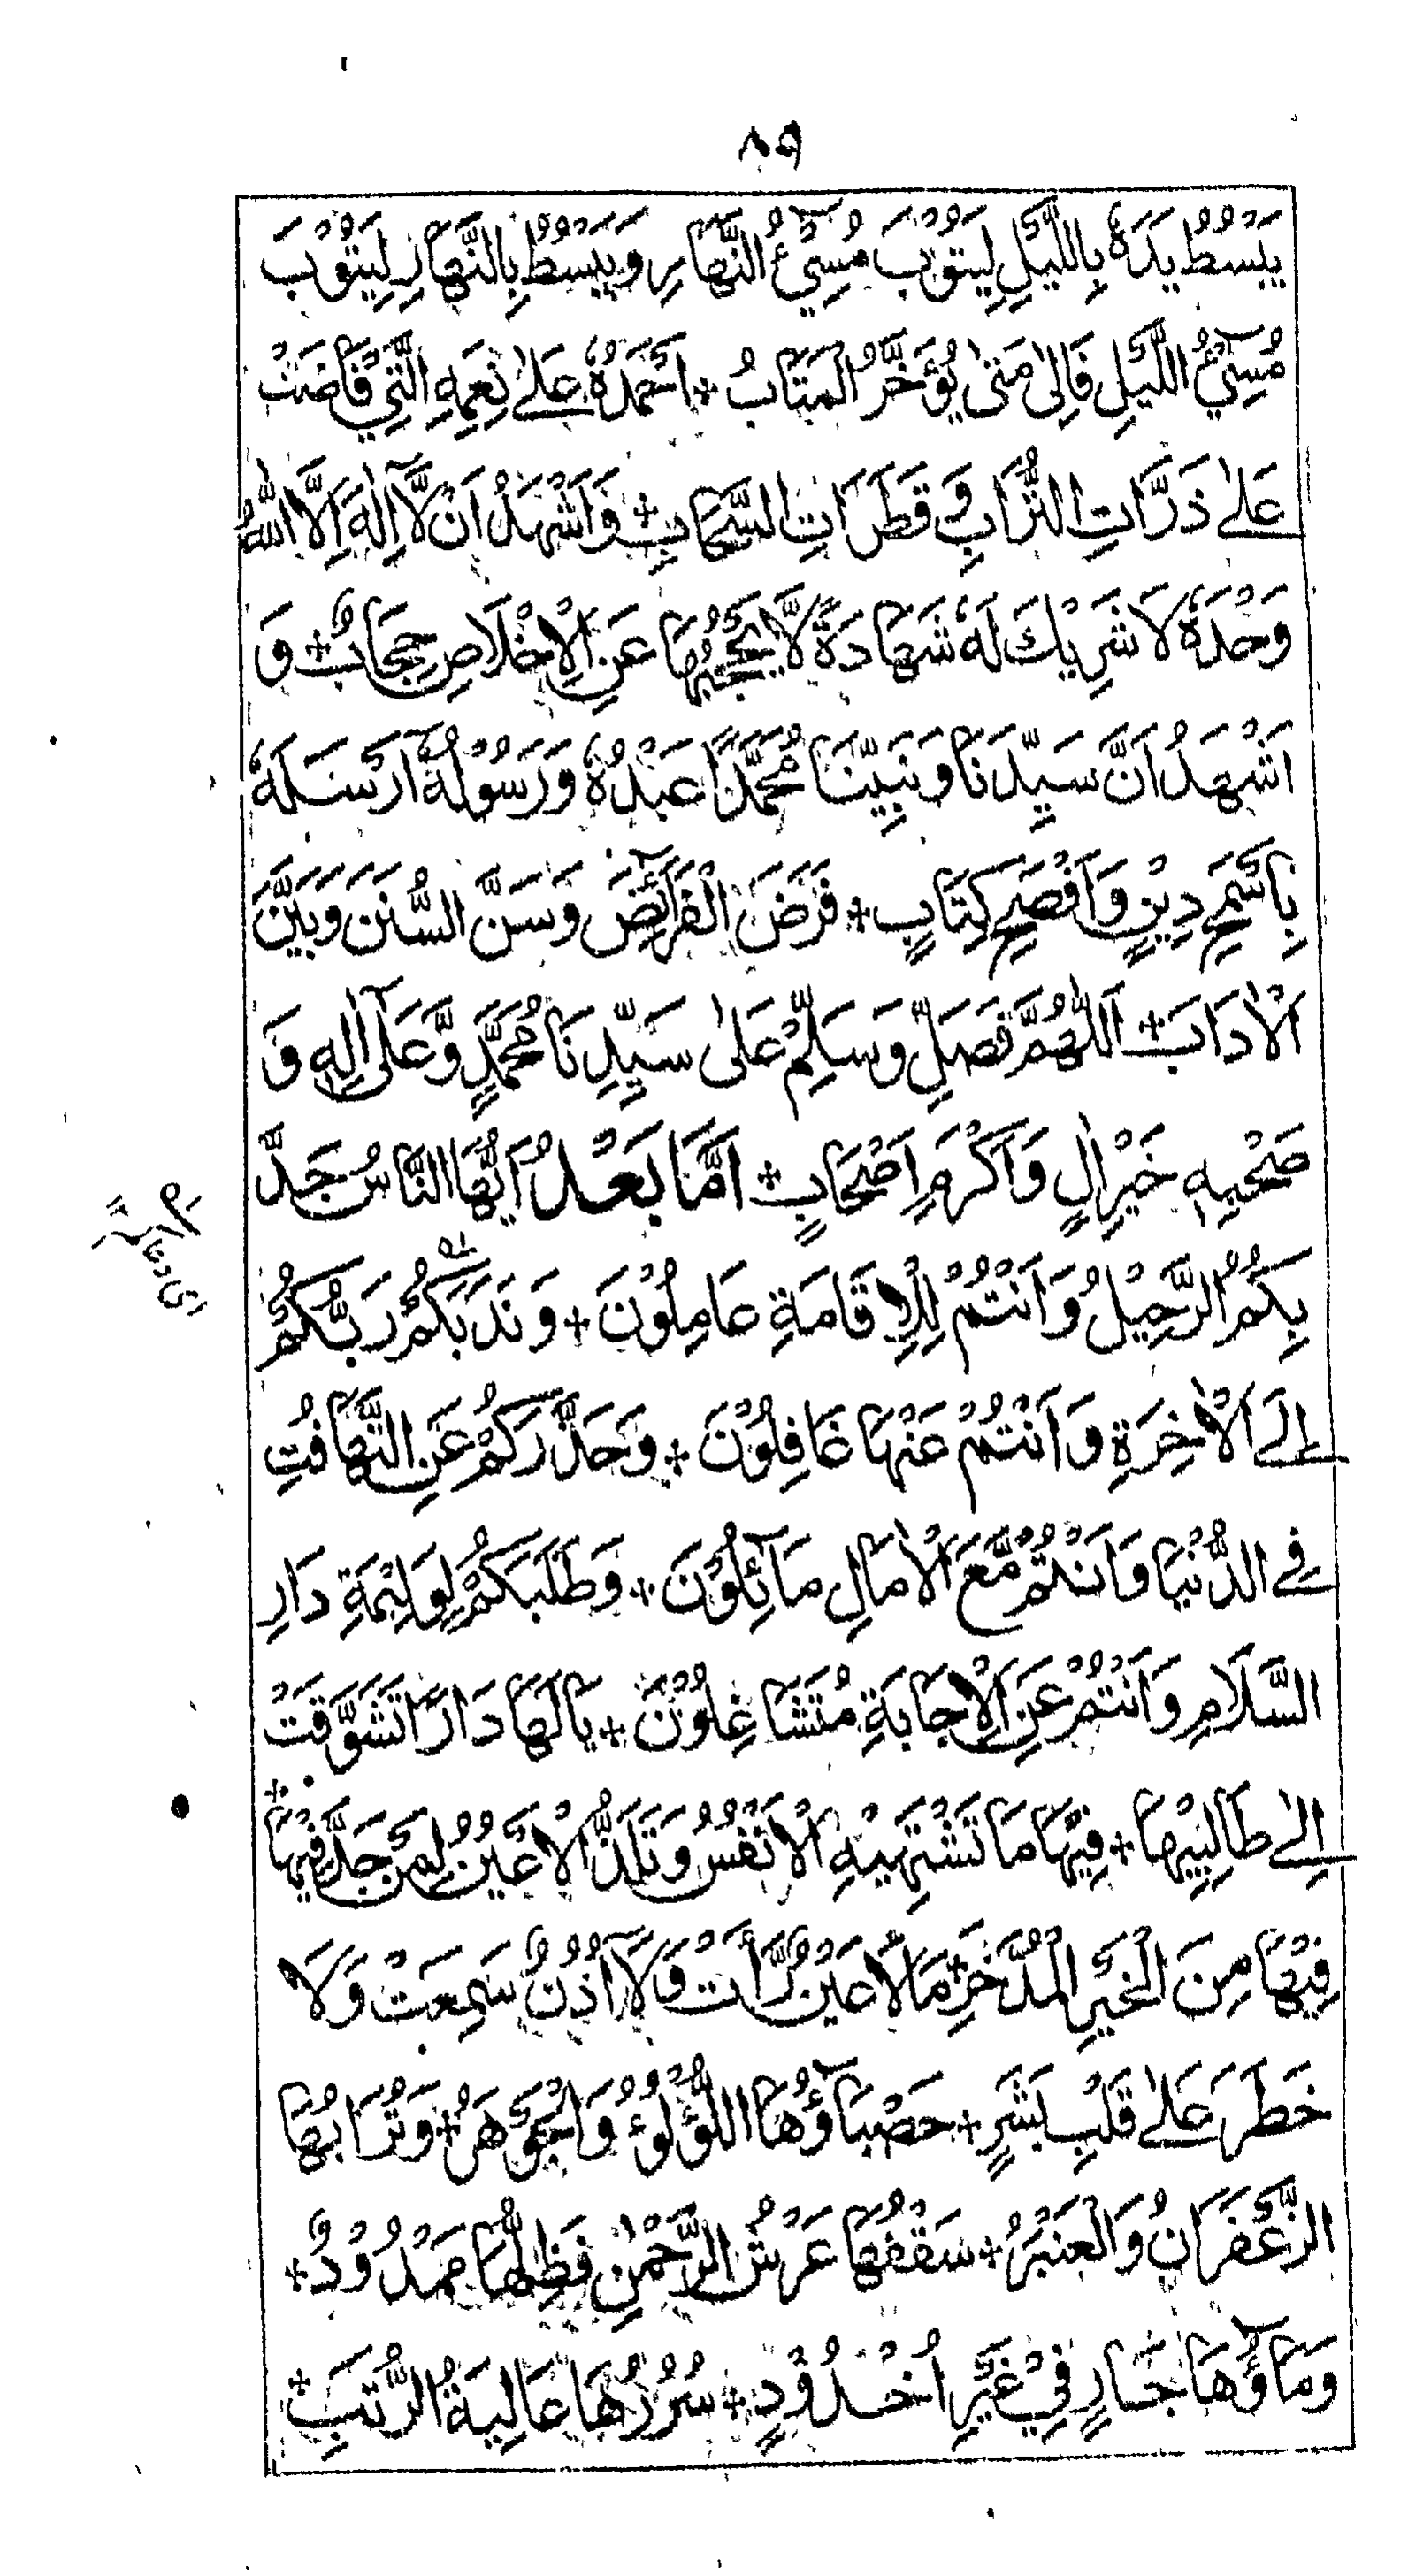 ٨٩
يَبْسُطُ يَدَهٗ بِاللَّيْلِ لِيَتُوْبَ مُسِيْٓءُ النَّهَارِ وَيَبْسُطُ بِالنَّهَارِ لِيَتُوْبَ
مُسِيْٓءُ اللَّيْلِ فَاِلٰى مَتٰى يُؤَخَّرُ الْمَتَابُ + اَحْمَدُهٗ عَلٰى نِعَمِهِ الَّتِيْ فَاضَتْ
عَلٰى ذَرَّاتِ التُّرَابِ وَ قَطَرَاتِ السَّحَابِ + وَاَشْهَدُ اَنْ لَّآ اِلٰهَ اِلَّا اللّٰهُ
وَحْدَهٗ لَا شَرِيْكَ لَهٗ شَهَادَةً لَّا يَحْجُبُهَا عَنِ الْاِخْلَاصِ حِجَابٌ + وَ
اَشْهَدُ اَنَّ سَيِّدَنَا وَنَبِيَّنَا مُحَمَّدًا عَبْدُهٗ وَرَسُوْلُهٗٓ اَرْسَلَهٗ
بِاَسْمَحِ دِيْنٍ وَاَفْصَحِ كِتَابٍ + فَرَضَ الْفَرَآئِضَ وَسَنَّ السُّنَنَ وَبَيَّنَ
الْاٰدَابَ + اَللّٰهُمَّ فَصَلِّ وَسَلِّمْ عَلٰى سَيِّدِنَا مُحَمَّدٍ وَّعَلٰٓى اٰلِهٖ وَ
صَحْبِهٖ خَيْرِ اٰلٍ وَاَكْرَمِ اَصْحَابٍ + اَمَّا بَعْدُ اَيُّهَا النَّاسُ جَدَّ
بِكُمُ الرَّحِيْلُ وَاَنْتُمْ لِلْاِقَامَةِ عَامِلُوْنَ + وَنَدَبَكُمْ رَبُّكُمْ
اِلَى الْاٰخِرَةِ وَاَنْتُمْ عَنْهَا غَافِلُوْنَ + وَحَذَّرَكُمْ عَنِ التَّهَافُتِ
فِي الدُّنْيَا وَاَنْتُمْ مَّعَ الْاٰمَالِ مَآئِلُوْنَ + وَطَلَبَكُمْ لِوَلِيْمَةِ دَارِ
السَّلَامِ وَاَنْتُمْ عَنِ الْاِجَابَةِ مُتَشَاغِلُوْنَ + يَالَهَا دَارًا تَشَوَّقَتْ
اِلٰى طَالِبِيْهَا + فِيْهَا مَا تَشْتَهِيْهِ الْاَنْفُسُ وَتَلَذُّ الْاَعْيُنُ لِمَنْ جَدَّ فِيْهَا +
فِيْهَا مِنَ الْخَيْرِ الْمُدَّخَرِ + مَا لَا عَيْنٌ رَّاَتْ وَلَآ اُذُنٌ سَمِعَتْ وَلَا
خَطَرَ عَلٰى قَلْبِ بَشَرٍ + حَصْبَآؤُهَا اللُّؤْلُوءُ وَالْجَوْهَرُ + وَتُرَابُهَا
الزَّعْفَرَانُ وَالْعَنْبَرُ + سَقْفُهَا عَرْشُ الرَّحْمٰنِ فَظِلُّهَا مَمْدُوْدٌ +
وَمَآؤُهَا جَارٍ فِيْ غَيْرِ اُخْدُوْدٍ + سُرُرُهَا عَالِيَةُ الرُّتَبِ +